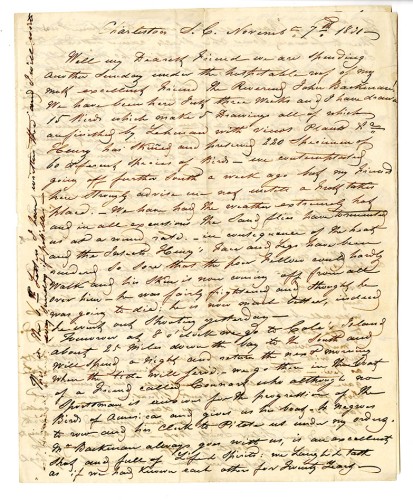 Charleston S.C. November 7th 1831
Well my Dearest Friend we are spending
another Sunday under the hospitable roof of my
most excellent friend the Reverend John Bachman!
We have been here Just three Weeks and I have drawn
15 Birds which make 5 Drawings all of which
are finished by Lehman with views Plants &c
Henry has skinned and preserved 220 Specimens of
60 different species of Birds — we contemplated
going off further South a week ago but my friends
here strongly advise me not untill a frost takes
place. — We have had the weather extremely hot
and in all excursions the Sand flies have tormented
us at a round rate. — in consequence of the heat
and the Insects Henry's face and legs have been
so sore that the poor fellow could hardly
Walk and his Skin is now coming off from all
over him — he was fairly frightened and thought he
was going to die; he is now much better, indeed
he went out Shooting yesterday —
Tomorrow at 3 o'clock we go to Cole's Island
about 25 Miles down the bay to the South and
will spend a Night and return the next Morning
when the tide will — we go there in the Boat
of a Friend called who although now
a Sportsman is anxious for the progress of the
Birds of America and gives us his boat, 4 Negroes
to row and his Clerk to Pilote us under my orders.
Mr Bachman always goes with us, is an excellent
Shot and full of Life & Spirits; we laugh & talk
as if we had known each other for Twenty Years —
The of I have written thee and I will